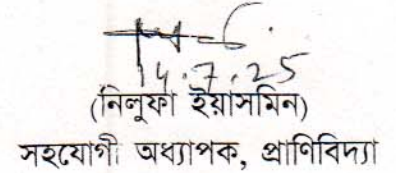 14.7.25
(নিলুফা ইয়াসমিন)
সহযোগী অধ্যাপক, প্রাণিবিদ্যা